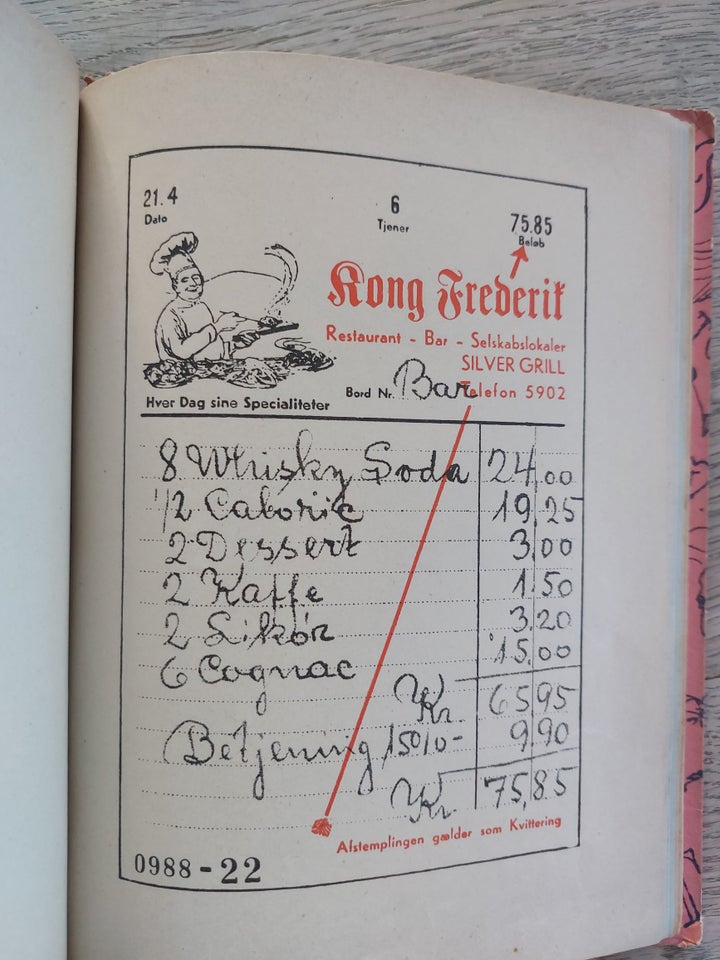 21.4 6 75.85
Dato Tjener Beløb
Kong Frederik
Restaurant - Bar - Selskabslokaler
SILVER GRILL
Bord Nr. Bar Telefon 5902
Hver Dag sine Specialiteter
8 Whisky Soda 24,00
1/2 Caloric 19,25
2 Dessert 3,00
2 Kaffe 1,50
2 Likör 3,20
6 Cognac 15,00
Kr. 65,95
Betjening 15 0/0 - 9,90
Kr. 75,85
Afstemplingen gælder som Kvittering
0988-22